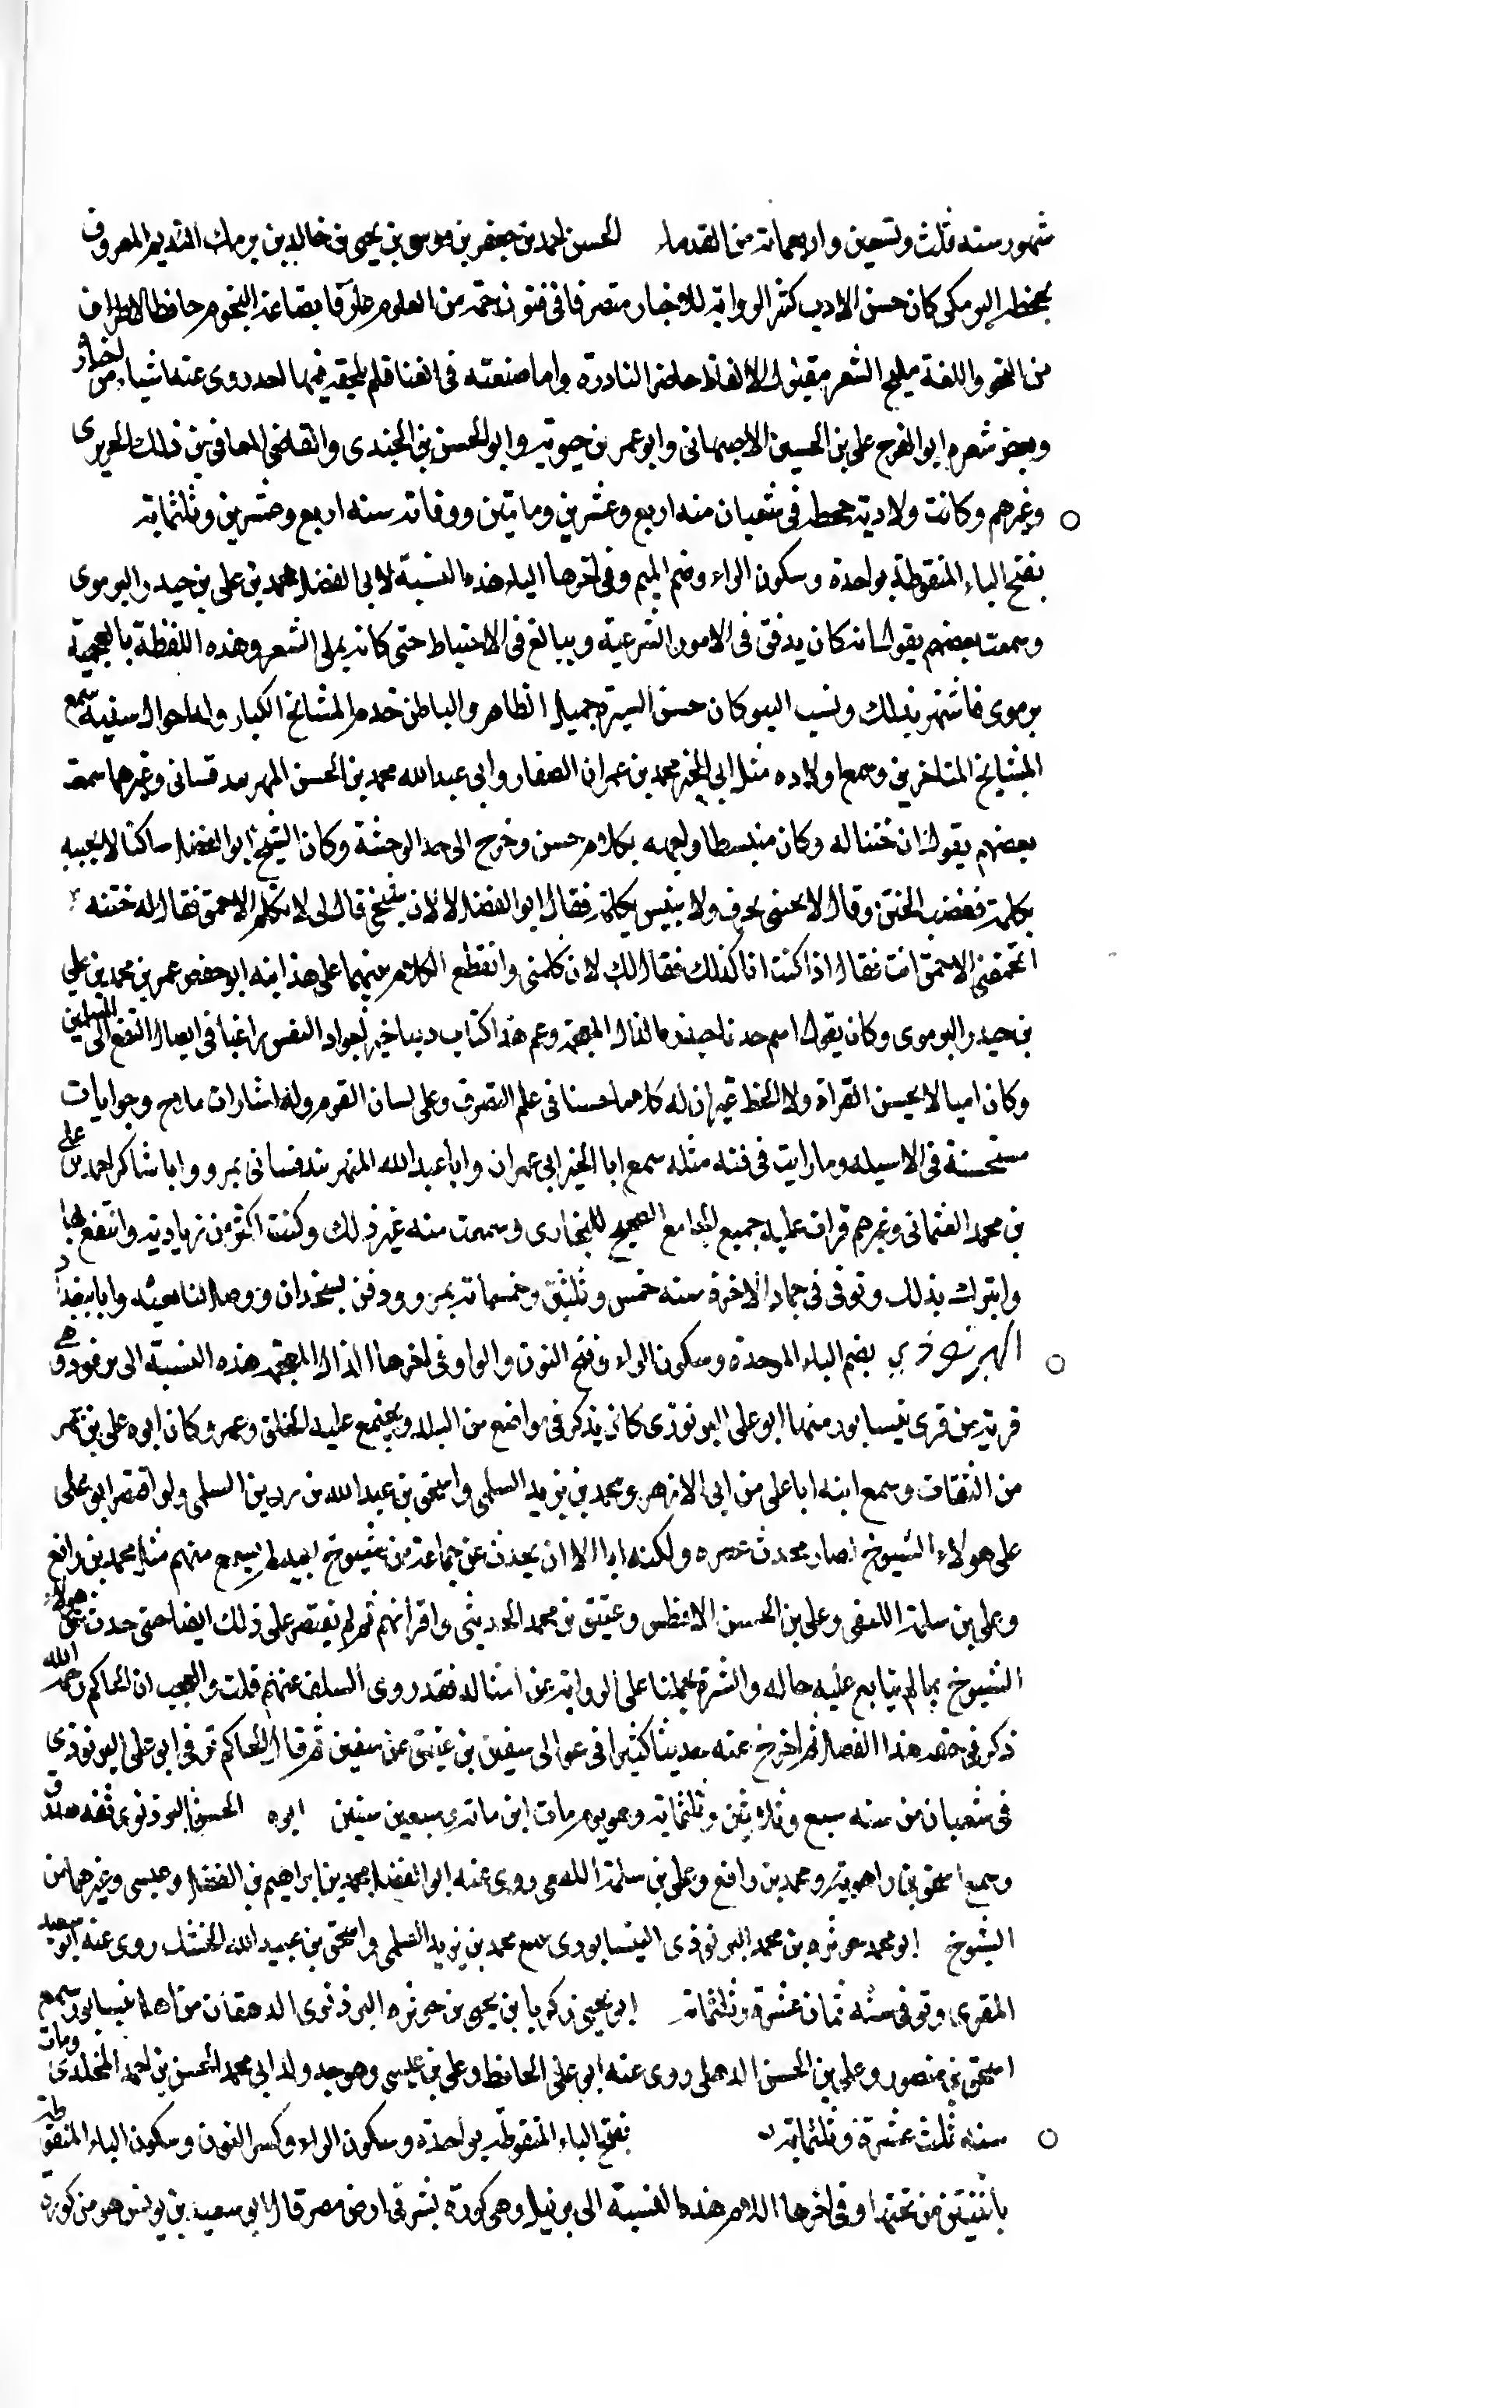 شهور سنه ثلث وتسعين واربعماية من القدماء الحسن احمد بن جعفر بن موسى بن يحيى بن خالد بن برمك النديم المعروف
بجحظه البرمكي كان حسن الادب كثير الرواية للاخبار متصرفا في فنون جمة من العلوم بصناعة النجوم حافظا لاطراف
من النحو واللغة مليح الشعر مقبول الالفاظ حاضر النادرة واما صنعته في الغنا فلم يلحقه فيها احد روى عنه اشياء من اخباره
وبعض شعره ابو الفرج علي بن الحسين الاصبهاني وابو عمر بن حيويه وابو الحسن بن الجندي والقاضي المعافى بن الحريري
وغيرهم وكانت ولادية جحظه في شعبان سنه اربع وعشرين وماتين ووفاته سنه اربع وعشرين وثلثماية
بفتح الباء المنقوطة بواحدة وسكون الراء وضم الميم وفي اخرها الياء هذه النسبة لابي الفضل محمد بن علي بن حيدر البرموى
وسمعت بعضهم يقول انه كان يدقق في الامور الشرعية ويبالغ في الاحتياط حتى كان يملى الشعر وهذه اللفظة بالعجمية
برموى فاشتهر بذلك ونسب اليه وكان حسن السيرة جميل الظاهر والباطن خدم المشايخ الكبار وله احوال سنية سمع
المشايخ المتاخرين وسمع اولاده مثل ابي الخير محمد بن عمران الصفار وابي عبد الله محمد بن الحسن المهربندقساني وغيرهما سمعت
بعضهم يقول ان ختنا له وكان منبسطا بكلام حسن وخرج الى حد الوحشة وكان الشيخ ابو الفضل ساكتا لا يجيبه
بكلمة فغضب الختن وقال لا بحرف ولا ينبس بكلمة فقال ابو الفضل لا لان قال لي لا تكلم الاحمق فقال له ختنه
الاحمق انت فقال اذا كنت انا كذلك فقال لك لان كلمني وانقطع الكلام بينهما على هذا ابنه ابو حفص عمر بن محمد بن علي
بن حيدر البرموى وكان يقول اسم جدنا بالذال المعجمة وعم هذا كتاب دينا خيرا جواد النفس راغبا في ايصال النفع الى المسلمين
وكان اميا لا يحسن القراة ولا الخط غير ان له كلاما حسنا في علم التصوف وعلى لسان القوم وله اشارات وجوابات
مستحسنة في الاسيله وما رايت في فنه مثله سمع ابا الخير ابي عمران وابا عبد الله المهربندقساني بمرو وابا شاكر احمد بن علي
بن محمد العثماني وغيرهم قرات عليه جميع الجامع الصحيح للبخارى وسمعت منه غير ذلك وكنت اكثر من زيارته وانتفع بها
واتبرك بذلك وتوفي في جمادى الاخرة سنه خمس وثلثين وخمسماية بمرو ودفن بسنجدان ووصل لنا نعيه وانا ببغداد
البرنوذي بضم الباء الموحدة وسكون الراء وفتح النون والواو في اخرها الذال المعجمة هذه النسبة الى برنوذ وهي
قرية من قرى نيسابور منها ابو علي البرنوذى كان يذكر في مواضع من البلد ويجتمع عليه الخلق وعمر وكان ابوه علي بن
من الثقات وسمع ابنه ابا علي من ابي الازهر ومحمد بن يزيد السلمي واسحق بن عبد الله بن رزين السلمي ولو اقتصر ابو علي
على هولاء الشيوخ لصار محدث عصره ولكنه ابا الا ان يحدث عن جماعة من شيوخ ابيه لم يسمع منهم مثل محمد بن رافع
وعلي بن سلمة اللبقي وعلي بن الحسن الافطس وعتيق بن محمد الحريثي واقرانهم ثم لم يقتصر على ذلك ايضا حتى حدث عن هولاء
الشيوخ بما لم يتابع عليه حاله والشره يحملنا على الرواية عن امثاله فقد روى السلف عنهم قلت والعجب ان الحاكم رحمه الله
ذكر في حقه هذا الفصل ثم اخرج عنه حديثا كثيرا في عوالي سفين بن عن سفين ثم قال الحاكم توفي ابو علي البرنوذي
في شعبان من سنه سبع وثلاثين وثلثماية وهو يوم مات ابن ماية سبعين سنين ابوه الحسن البرذنوى ثقه صدوق
وسمع اسحق بن راهوية ومحمد بن رافع وعلي بن سلمة اللبقي روى عنه ابو الفضل محمد بن ابراهيم بن الفضل وعيسى وغيرهما من
الشيوخ ابو محمد حوثره بن محمد البرنوذى النيسابورى سمع محمد بن يزيد السلمي واسحق بن عبيد الله الخشك روى عنه ابو سعيد
المقرى وتوفي سنه ثمان عشرة وثلثماية ابو يحيى زكريا بن يحيى بن حوثره البرذنوى الدهقان من اهل نيسابور سمع
اسحق بن منصور وعلي بن الحسن الدهلي روى عنه ابو علي الحافظ وعلي بن عيسى وهو جد والد ابي محمد الحسن بن احمد المخلدى ومات
سنه ثلث عشرة وثلثماية بفتح الباء المنقوطة بواحدة وسكون الراء وكسر النون وسكون الياء المنقوطة
باثنتين من تحتها وفي اخرها اللام هذه النسبة الى برنيل وهي كورة بشرقي ارض مصر قال ابو سعيد بن يونس هو من كورة